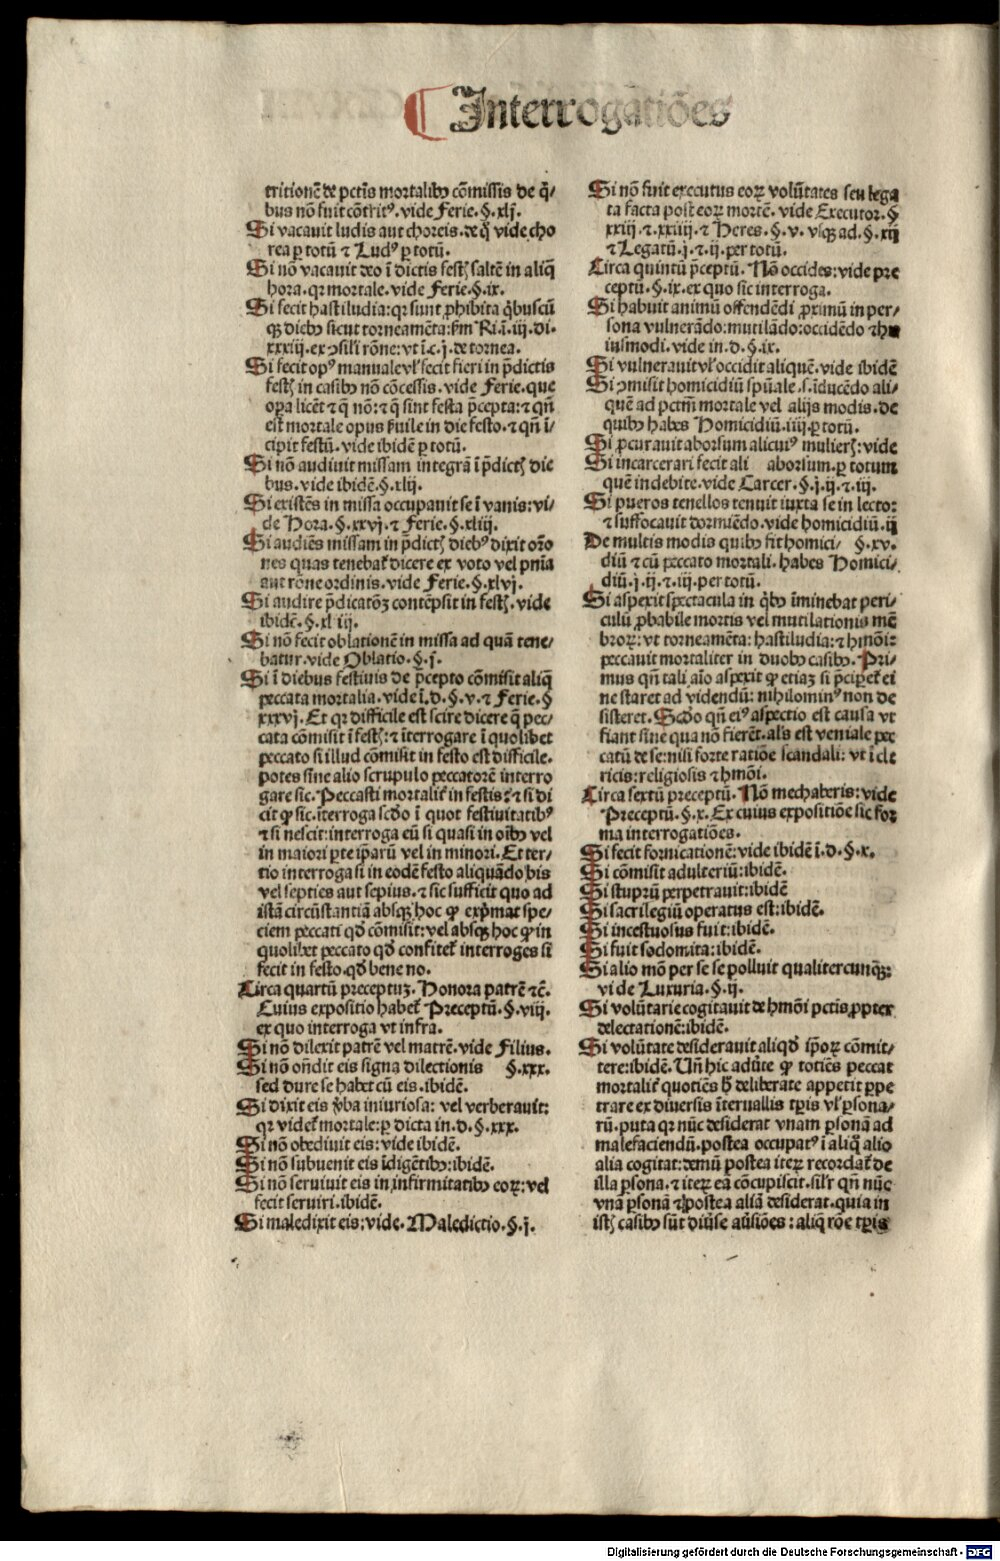 Interrogatiões
tritionē de pctīs mortalibꝰ cōmissis de q̄/
bus nōn fuit cōtritꝰ. vide Ferie. §. xlj.
Si vacauit ludis aut choreis. de q̄ vide cho
rea ꝑ totū ⁊ Ludꝰ ꝑ totū.
Si nō vacauit deo ī dictis festꝭ saltē in aliq̄
hora. qꝛ mortale. vide Ferie. §. ix.
Si fecit hastiludia: qꝛ sunt ꝓhibita q̄buscū
qꝫ diebꝰ sicut torneamēta: ẜm Ri. ī. iij. di.
xxxiij. ex ꝯsili rōne: vt ī. c. j. de tornea.
Si fecit opꝰ manuale vl' fecit fieri in p̄dictis
festꝭ in casibꝰ nō cōcessis. vide Ferie. que
oꝑa licēt ⁊ q̄ nō: ⁊ q̄ sint festa p̄cepta: ⁊ qn̄
est mortale opus ẜuile in die festo. ⁊ qn̄ ī/
cipit festū. vide ibidē ꝑ totū.
Si nō audiuit missam integrā ī p̄dictꝭ die
bus. vide ibidē. §. xlij.
Si existēs in missa occupauit se ī vanis: vi/
de Hora. §. xxvj. ⁊ Ferie. §. xliij.
Si audiēs missam in p̄dictꝭ diebꝰ dixit orō
nes quas tenebat̄ dicere ex voto vel pn̄ia
aut rōne ordinis. vide Ferie. §. xlvj.
Si audire p̄dicatōꝫ contēpsit in festꝭ. vide
ibidē. §. xl iij.
Si nō fecit oblationē in missa ad quā tene/
batur. vide Oblatio. §. j.
Si ī diebus festiuis de p̄cepto cōmisit aliq̄
peccata mortalia. vide ī. d. §. v. ⁊ Ferie. §
xxxvj. Et qꝛ difficile est scire dicere q̄ pec/
cata cōmisit ī festꝭ: ⁊ īterrogare ī quolibet
peccato si illud cōmisit in festo est difficile.
potes sine alio scrupulo peccatorē interro
gare sic. Peccasti mortalit̄ in festis: ⁊ si di
cit ꝙ sic. īterroga scdo ī quot festiuitatibꝰ
⁊ si nescit: interroga eū si quasi in oībꝰ vel
in maiori ꝑte ip̄arū vel in minori. Et ter/
tio interroga si in eodē festo aliquādo bis
vel septies aut sepius. ⁊ sic sufficit quo ad
istā circūstantiā absqꝫ hoc ꝙ exp̄mat spe/
ciem peccati qd̄ cōmisit: vel absqꝫ hoc ꝙ in
quolibet peccato qd̄ confitet̄ interroges si
fecit in festo. qd̄ bene no.
Circa quartū preceptuꝫ. Honora patrē ⁊c̄.
Cuius expositio habet̄ Preceptū. §. viij.
ex quo interroga vt infra.
Si nō dilexit patrē vel matrē. vide Filius.
Si nō on̄dit eis signa dilectionis §. xxx.
sed dure se habet cū eis. ibidē.
Si dixit eis v̄ba iniuriosa: vel verberauit:
qꝛ videt̄ mortale: ꝑ dicta in. d. §. xxx.
Si nō obediuit eis: vide ibidē.
Si nō subuenit eis īdigētibꝰ: ibidē.
Si nō seruiuit eis in infirmitatibꝰ eoꝝ: vel
fecit seruiri. ibidē.
Si maledixit eis: vide. Maledictio. §. j.
Si nō fuit executus eoꝝ volūtates seu lega
ta facta post eoꝝ mortē. vide Executor. §
xxiij. ⁊. xxiiij. ⁊ Heres. §. v. vsqꝫ ad. §. xij
⁊ Legatū. j. ⁊. ij. per totū.
Circa quintū p̄ceptū. Nō occides: vide pre
ceptū. §. ix. ex quo sic interroga.
Si habuit animū offendēdi ꝓximū in per/
sona vulnerādo: mutilādo: occidēdo ⁊ hu
iusmodi. vide in. d. §. ix.
Si vulnerauit vl' occidit aliquē. vide ibidē
Si ꝯmisit homicidiū spūale. s. īducēdo ali/
quē ad pctm̄ mortale vel alijs modis. de
quibꝰ habes Homicidiū. iiij. ꝑ totū.
Si ꝓcurauit aborsum alicuiꝰ mulierꝭ: vide
Si incarcerari fecit ali aborsum. ꝑ totum
quē indebite. vide Carcer. §. j. ij. ⁊. iij.
Si pueros tenellos tenuit iuxta se in lecto:
⁊ suffocauit dormiēdo. vide homicidiū. ij
De multis modis quibꝰ fit homici/ §. xv.
diū ⁊ cū peccato mortali. habes Homici/
diū. j. ij. ⁊. iij. per totū.
Si aspexit spectacula in q̄bꝰ īminebat peri/
culū ꝓbabile mortis vel mutilationis mē
broꝝ: vt torneamēta: hastiludia: ⁊ hmōi:
peccauit mortaliter in duobꝰ casibꝰ. Pri/
mus qn̄ tali aīo aspexit ꝙ etiaꝫ si p̄ciperet̄ ei
ne staret ad videndū: nihilominꝰ non de
sisteret. Scdo qn̄ eiꝰ aspectio est causa vt
fiant sine qua nō fierēt. al's est veniale pec
catū de se: nisi forte ratiōe scandali: vt ī cle
ricis: religiosis ⁊ hmōi.
Circa sextū preceptū. Nō mechaberis: vide
Preceptū. §. x. Ex cuius expositiōe sic for
ma interrogatiōes.
Si fecit fornicationē: vide ibidē ī. d. §. x.
Si cōmisit adulteriū: ibidē.
Si stuprū perpetrauit: ibidē
Si sacrilegiū operatus est: ibidē.
Si incestuosus fuit: ibidē.
Si fuit sodomita: ibidē.
Si alio mō per se se polluit qualitercunqꝫ:
vide Luxuria. §. ij.
Si volūtarie cogitauit de hmōi pctīs ꝓpter
delectationē: ibidē.
Si volūtate desiderauit aliqd̄ ip̄oꝝ cōmit/
tere: ibidē. Vn̄ hic adūte ꝙ totiēs peccat
mortalit̄ quotiēs h̄ deliberate appetit ꝑpe
trare ex diuersis īteruallis tꝑis vl' ꝑsona/
rū. puta qꝛ nūc desiderat vnam ꝑsonā ad
malefaciendū. postea occupatꝰ ī aliq̄ alio
alia cogitat: demū postea iteꝝ recordat̄ de
illa ꝑsona. ⁊ iteꝝ eā cōcupiscit. sil'r qn̄ nūc
vnā ꝑsonā ⁊ postea aliā desiderat. quia in
istꝭ casibꝰ sūt diūse aūsiōes: aliq̄ rōe tꝑis
Digitalisierung gefördert durch die Deutsche Forschungsgemeinschaft - DFG